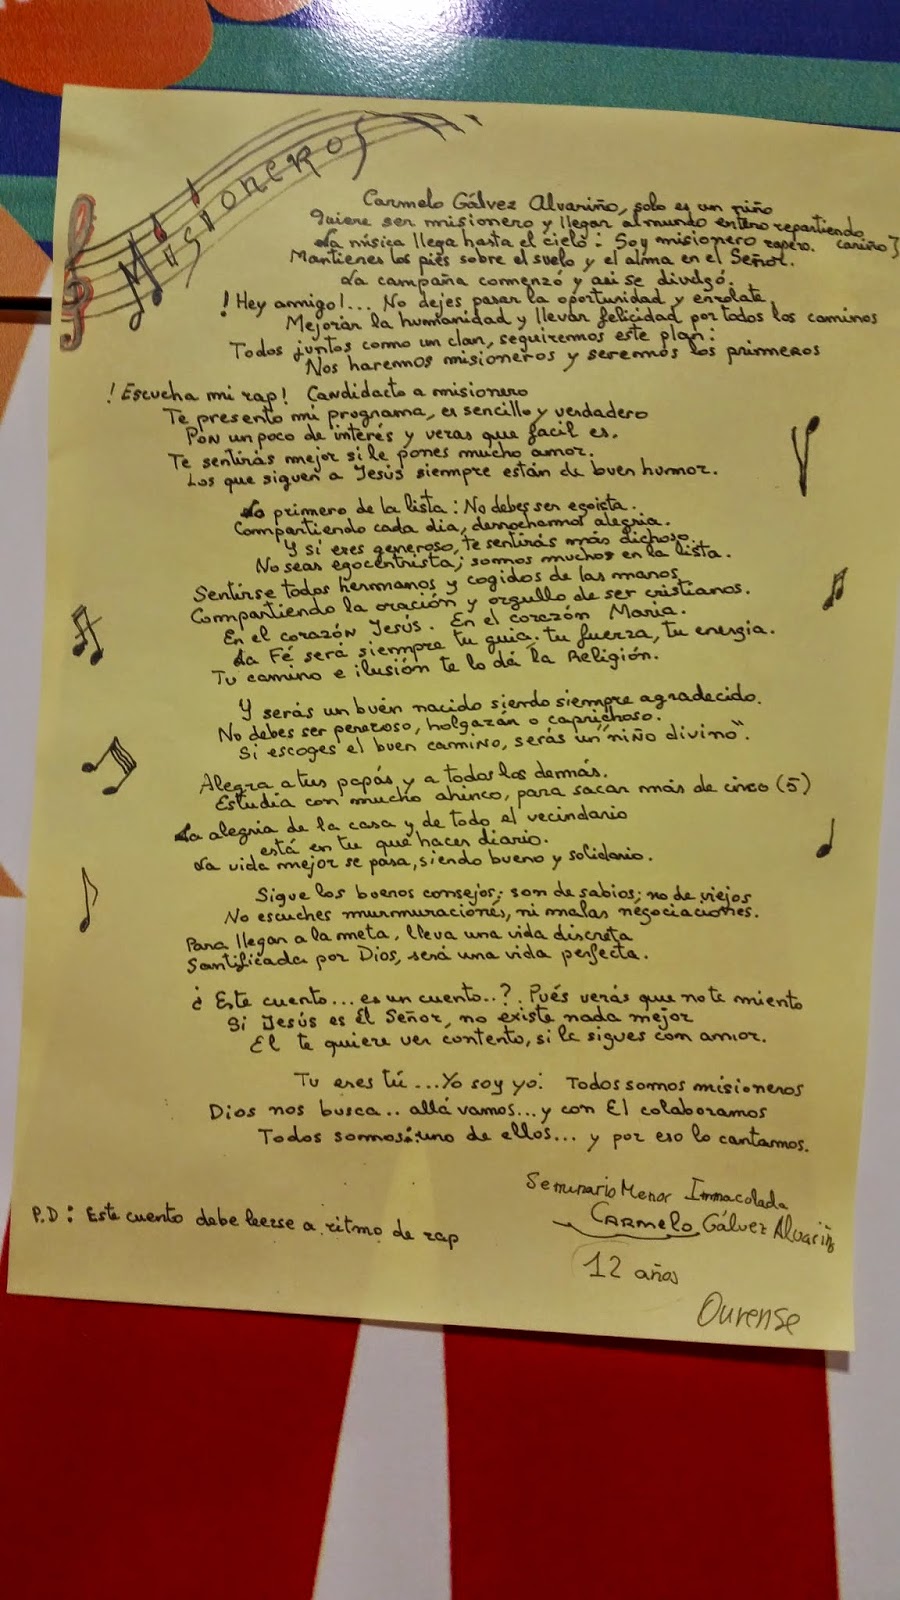 Misioneros
Carmelo Gálvez Alvariño, solo es un niño
Quiere ser misionero y llegar al mundo entero repartiendo
cariño}
La música llega hasta el cielo: Soy misionero rapero.
Mantienes los piés sobre el suelo y el alma en el Señor.
La campaña comenzó y asi se divulgó.
!Hey amigo!... No dejes pasar la oportunidad y enrolate
Mejorar la humanidad y llevar felicidad por todos los caminos
Todos juntos como un clan, seguiremos este plan:
Nos haremos misioneros y seremos los primeros
!Escucha mi rap! Candidacto a misionero
Te presento mi programa, es sencillo y verdadero
Pon un poco de interés y veras que facil es.
Te sentirás mejor si le pones mucho amor.
Los que siguen a Jesús siempre están de buen humor.
Lo primero de la lista: No debes ser egoista.
Compartiendo cada dia, derrochamos alegria.
Y si eres generoso, te sentirás más dichoso.
No seas egocentrista; somos muchos en la lista.
Sentirse todos hermanos y cogidos de las manos
Compartiendo la oración y orgullo de ser cristianos.
En el corazón Jesús. En el corazón Maria.
La Fé será siempre tu guia, tu fuerza, tu energia.
Tu camino e ilusión te lo dá la Religión.
Y serás un buen nacido siendo siempre agradecido.
No debes ser perezoso, holgazán o caprichoso.
Si escoges el buen camino, serás un "niño divino".
Alegra a tus papás y a todos los demás.
Estudia con mucho ahinco, para sacar más de cinco (5)
La alegria de la casa y de todo el vecindario
está en tu que hacer diario.
La vida mejor se pasa, siendo bueno y solidario.
Sigue los buenos consejos; son de sabios; no de viejos
No escuches murmuraciones, ni malas negociaciones.
Para llegar a la meta, lleva una vida discreta
Santificada por Dios, será una vida perfecta.
¿Este cuento... es un cuento..? Pués verás que no te miento
Si Jesús es El Señor, no existe nada mejor
El te quiere ver contento, si le sigues con amor.
Tu eres tú... Yo soy yo: Todos somos misioneros
Dios nos busca.. allá vamos... y con El colaboramos
Todos somos: uno de ellos... y por eso lo cantamos.
Seminario Menor Immacolada
Carmelo Gálvez Alvariño
12 años
Ourense
P.D: Este cuento debe leerse a ritmo de rap